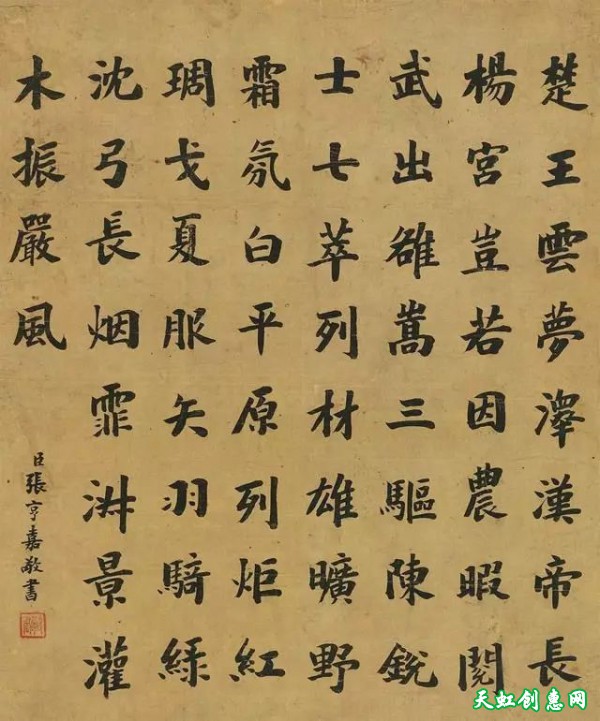 楚王雲夢澤漢帝長
楊宮豈若因農暇閱
武出雒嵩三驅陳銳
士七萃列材雄曠野
霜氛白平原列炬紅
琱戈夏服矢羽騎綠
沈弓長烟霏景灌
木振嚴風
臣張亨嘉敬書
天虹创惠网